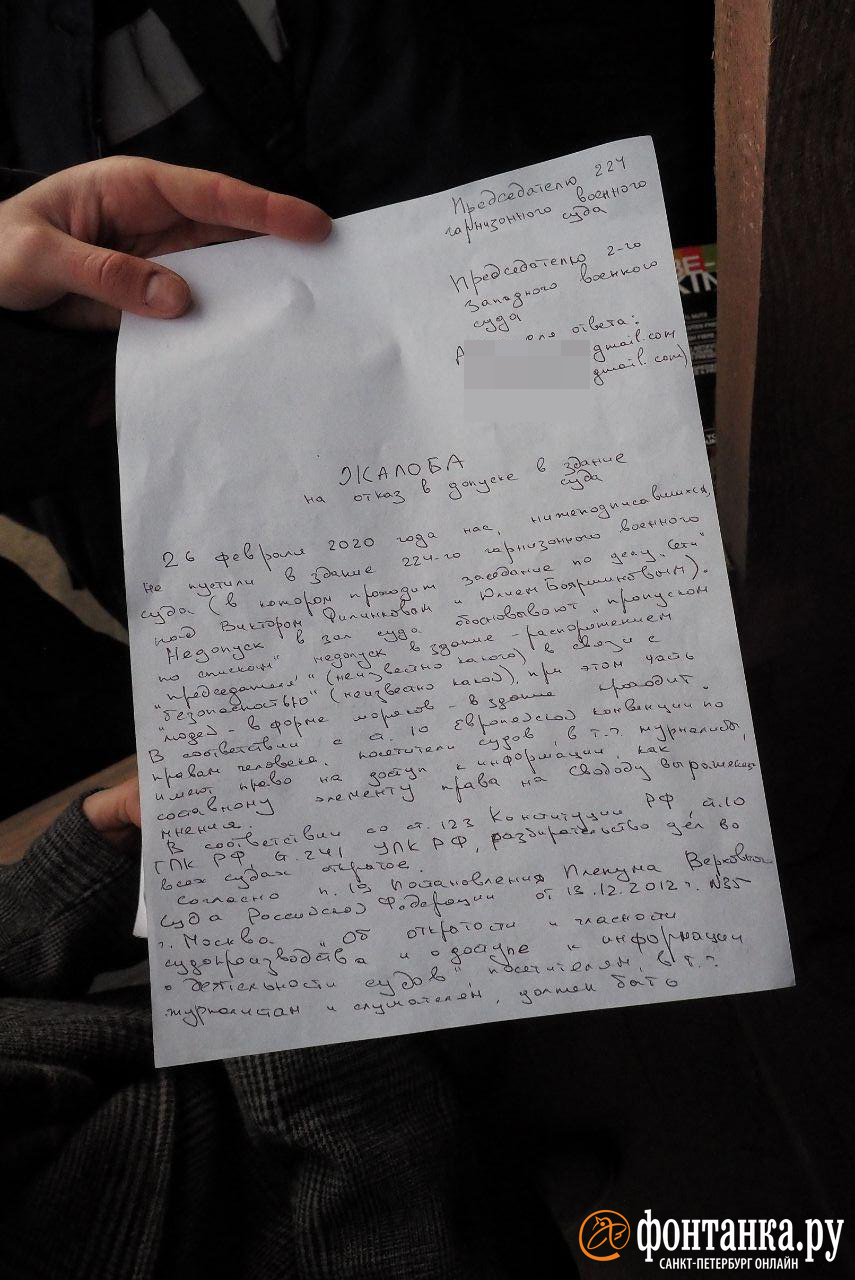 Председателю 224
гарнизонного военного
суда
Председателю 2-го
западного военного
суда
для ответа:
gmail.com
gmail.com)
ЖАЛОБА
на отказ в допуске в здание
суда
26 февраля 2020 года нас, нижеподписавшихся,
не пустили в здание 224-го гарнизонного военного
суда (в котором проходит заседание по делу "Сети"
над Виктором Филинковым и Юлием Бояршиновым).
Недопуск в зал суда обосновывают "пропуском
по спискам", недопуск в здание - распоряжением
"председателя" (неизвестно какого) в связи с
"безопасностью" (неизвестно какой), при этом часть
людей - в форме моряков - в здание проходит.
В соответствии с ст. 10 Европейской конвенции по
правам человека, посетители судов, в т.ч. журналисты,
имеют право на доступ к информации, как
составному элементу права на свободу выражения
мнения.
В соответствии со ст. 123 Конституции РФ, ст. 10
ГПК РФ, ст. 241 УПК РФ, разбирательство дел во
всех судах открытое.
Согласно п. 19 Постановления Пленума Верховного
Суда Российской Федерации от 13.12.2012 г. N35
г. Москва "Об открытости и гласности
судопроизводства и о доступе к информации
о деятельности судов", посетителям, в т.ч.
журналистам и слушателям, должен быть
фонтанка.ру
САНКТ-ПЕТЕРБУРГ ОНЛАЙН